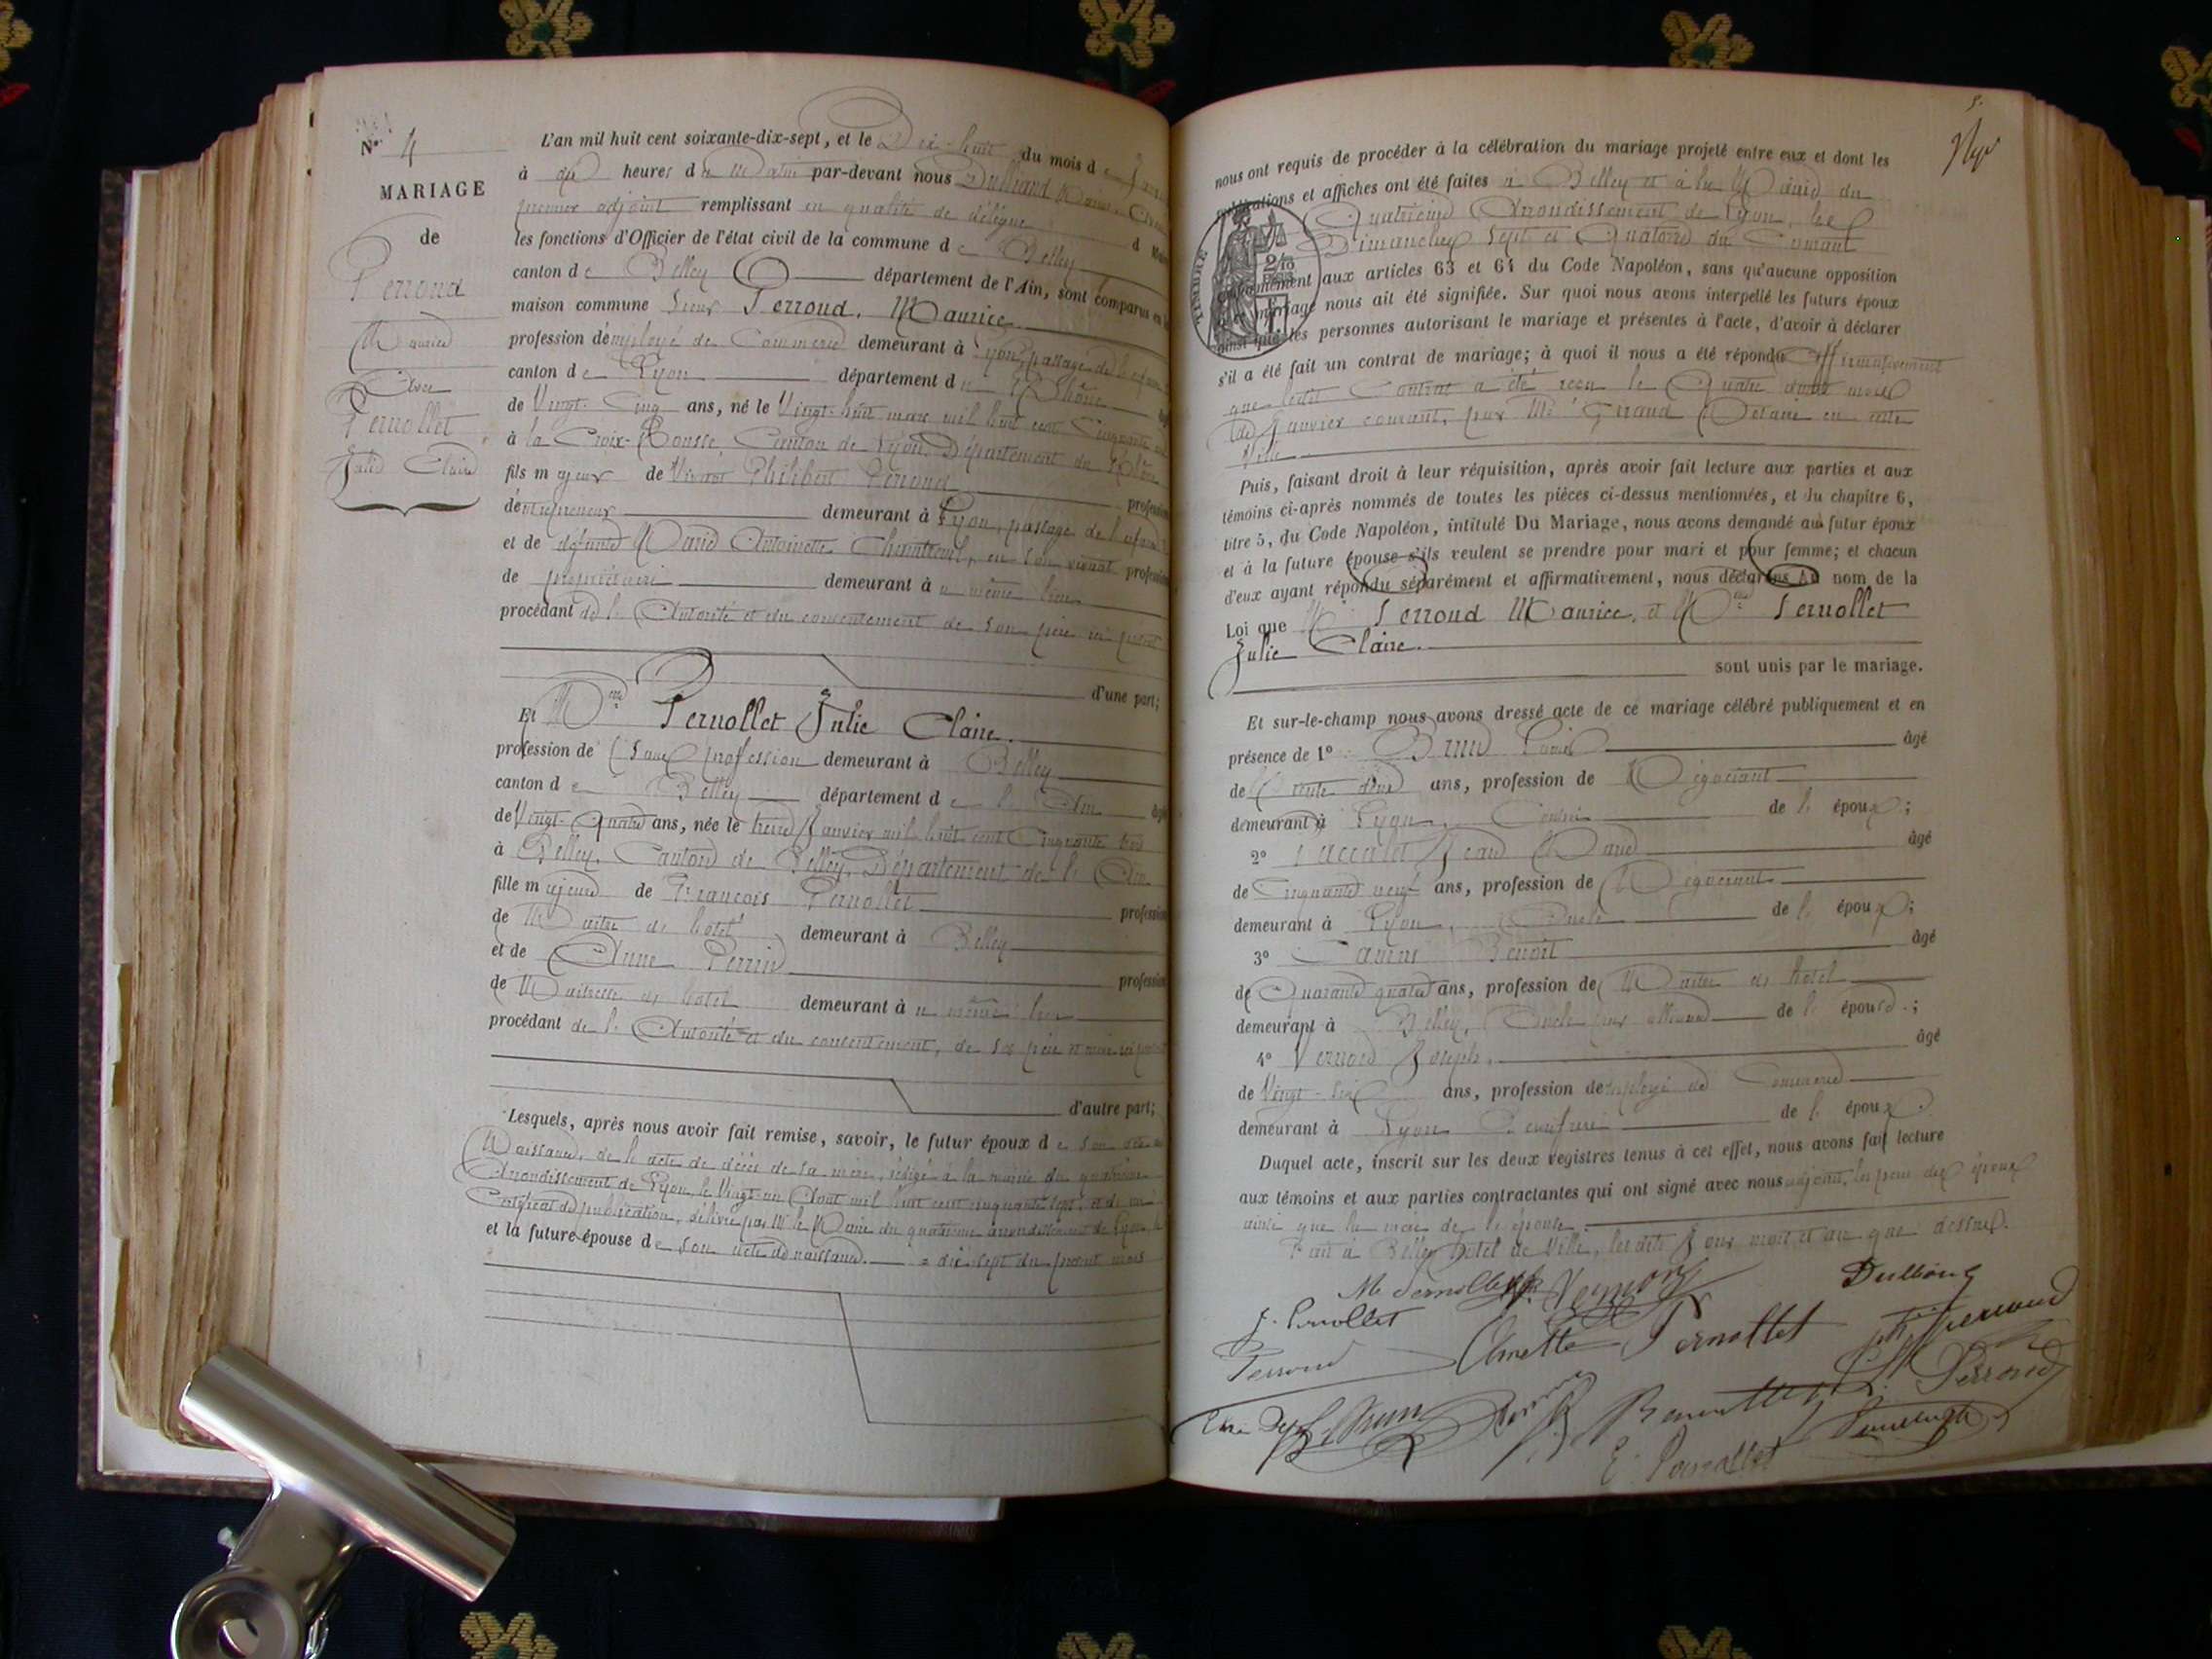 N° 4
MARIAGE
de
Perroud
Maurice
Avec
Pernollet
Julie Claire
L'an mil huit cent soixante-dix-sept, et le Dix-huit du mois de
à heures du Matin par-devant nous Dulliand
premier adjoint remplissant en qualité de délégué
les fonctions d'Officier de l'état civil de la commune de Belley
canton de Belley département de l'Ain, sont comparus en
maison commune Sieur Perroud, Maurice
profession d'employé de Commerce demeurant à Lyon, passage de
canton de Lyon département du Rhône
de Vingt-Cinq ans, né le Vingt-huit mars mil huit cent Cinquante
à la Croix-Rousse, Canton de Lyon, Département du Rhône
fils majeur de Vivant Philibert Perroud profession
d'entrepreneur demeurant à Lyon, passage de
et de défunte Marie Antoinette en son vivant profession
de propriétaire demeurant à même lieu
procédant de l'Autorité et du consentement de son père ici présent
d'une part;
Et Melle Pernollet Julie Claire.
profession de Sans profession demeurant à Belley
canton de Belley département de l'Ain âgé
de Vingt-Quatre ans, née le treize Janvier mil huit cent Cinquante trois
à Belley, Canton de Belley, Département de l'Ain
fille majeure de François Pernollet profession
de Maître d'hôtel demeurant à Belley
et de Anne Perrin profession
de Maîtresse d'hôtel demeurant à même lieu
procédant de l'Autorité et du consentement, de ses père et mère ici présents
d'autre part;
Lesquels, après nous avoir fait remise, savoir, le futur époux de son acte de
Naissance, de l'acte de décès de sa mère, rédigé à la mairie du quatrième
Arrondissement de Lyon, le Vingt-un Août mil huit cent cinquante sept, et d'un
Certificat de publication, délivré par Mr le Maire du quatrième arrondissement de Lyon, le
et la future épouse de son acte de naissance. = dix sept du présent mois
5.
nous ont requis de procéder à la célébration du mariage projeté entre eux et dont les
publications et affiches ont été faites à Belley et à la Mairie du
Quatrième Arrondissement de Lyon, les
Dimanches Sept et Quatorze du Courant
TIMBRE
2/10
conformément aux articles 63 et 64 du Code Napoléon, sans qu'aucune opposition
mariage nous ait été signifiée. Sur quoi nous avons interpellé les futurs époux
ainsi que les personnes autorisant le mariage et présentes à l'acte, d'avoir à déclarer
s'il a été fait un contrat de mariage; à quoi il nous a été répondu Affirmativement
que ledit Contrat a été reçu le Quatre du mois
de Janvier courant, par Me Notaire en cette
Ville
Puis, faisant droit à leur réquisition, après avoir fait lecture aux parties et aux
témoins ci-après nommés de toutes les pièces ci-dessus mentionnées, et du chapitre 6,
titre 5, du Code Napoléon, intitulé Du Mariage, nous avons demandé au futur époux
et à la future épouse s'ils veulent se prendre pour mari et pour femme; et chacun
d'eux ayant répondu séparément et affirmativement, nous déclarons Au nom de la
Loi que Mr Perroud Maurice, et Melle Pernollet
Julie Claire.
sont unis par le mariage.
Et sur-le-champ nous avons dressé acte de ce mariage célébré publiquement et en
présence de 1° Louis âgé
de Trente deux ans, profession de Négociant
demeurant à Lyon, Cousin de l'époux;
2° Jean Marie âgé
de Cinquante neuf ans, profession de Négociant
demeurant à Lyon, Oncle de l'époux;
3° Benoit âgé
de Quarante quatre ans, profession de Maître d'hôtel
demeurant à Belley, Oncle par alliance de l'épouse;
4° Joseph, âgé
de Vingt-six ans, profession d'employé de Commerce
demeurant à Lyon de l'époux.
Duquel acte, inscrit sur les deux registres tenus à cet effet, nous avons fait lecture
aux témoins et aux parties contractantes qui ont signé avec nous adjoint, les pères des époux
ainsi que la mère de l'épouse.
Fait à Belley hôtel de Ville, lesdits Jour mois et an que dessus.
Dulliand
J. Pernollet
Perroud
Annette Pernollet
Ph. Perroud
Perroud
E. Pernollet